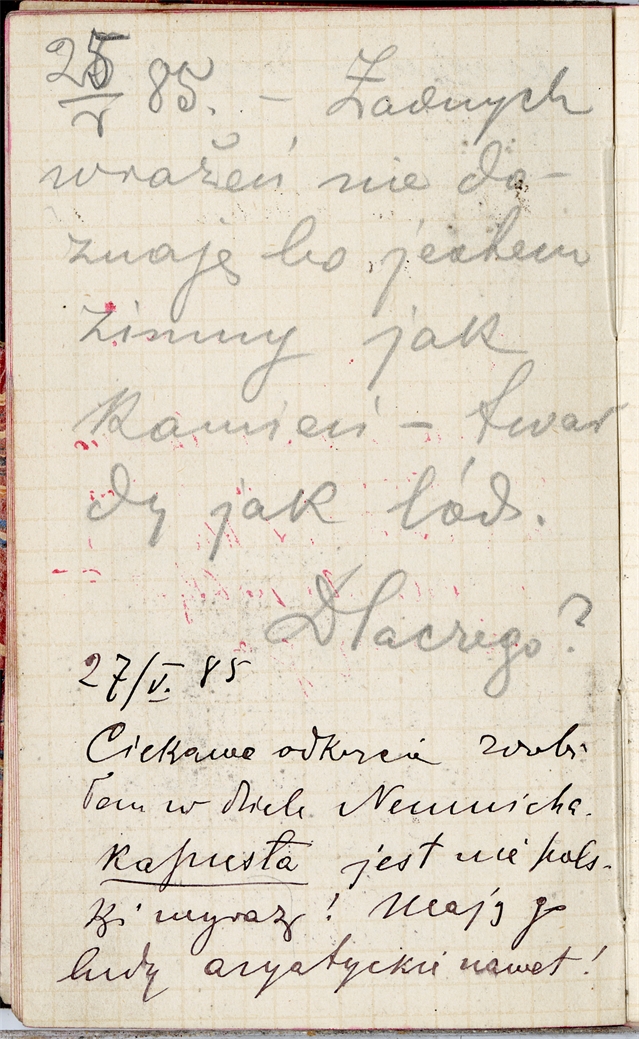 25/V 85. – Żadnych
wrażeń nie do-
znaję bo jestem
zimny jak
kamień – twar
dy jak lód.
Dlaczego?
27/V. 85
Ciekawe odkrycie zrobi-
łem w dziele Nemnicha.
Kapusta jest nie pols-
ki wyraz! Mają go
ludy azyatyckie nawet!